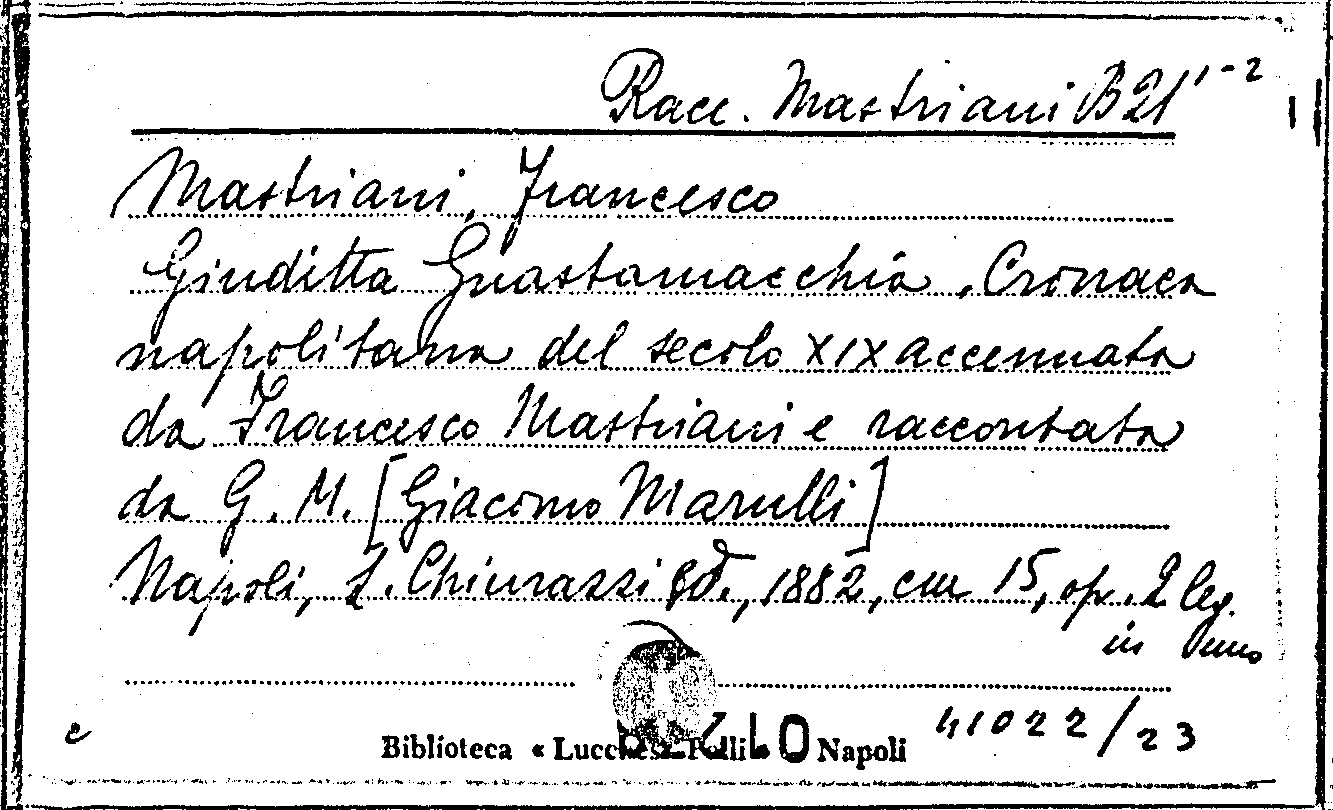 Racc. Mastriani B 21 1-2
Mastriani, Francesco
Giuditta Guastamacchia. Cronaca
napolitana del secolo XIX accennata
da Francesco Mastriani e raccontata
da G. M. [Giacomo Marulli]
Napoli, L. Chiurazzi Ed., 1882, cm 15, op. 2 leg.
in uno
e
41022/23
Biblioteca « Lucchesi-Palli » Napoli